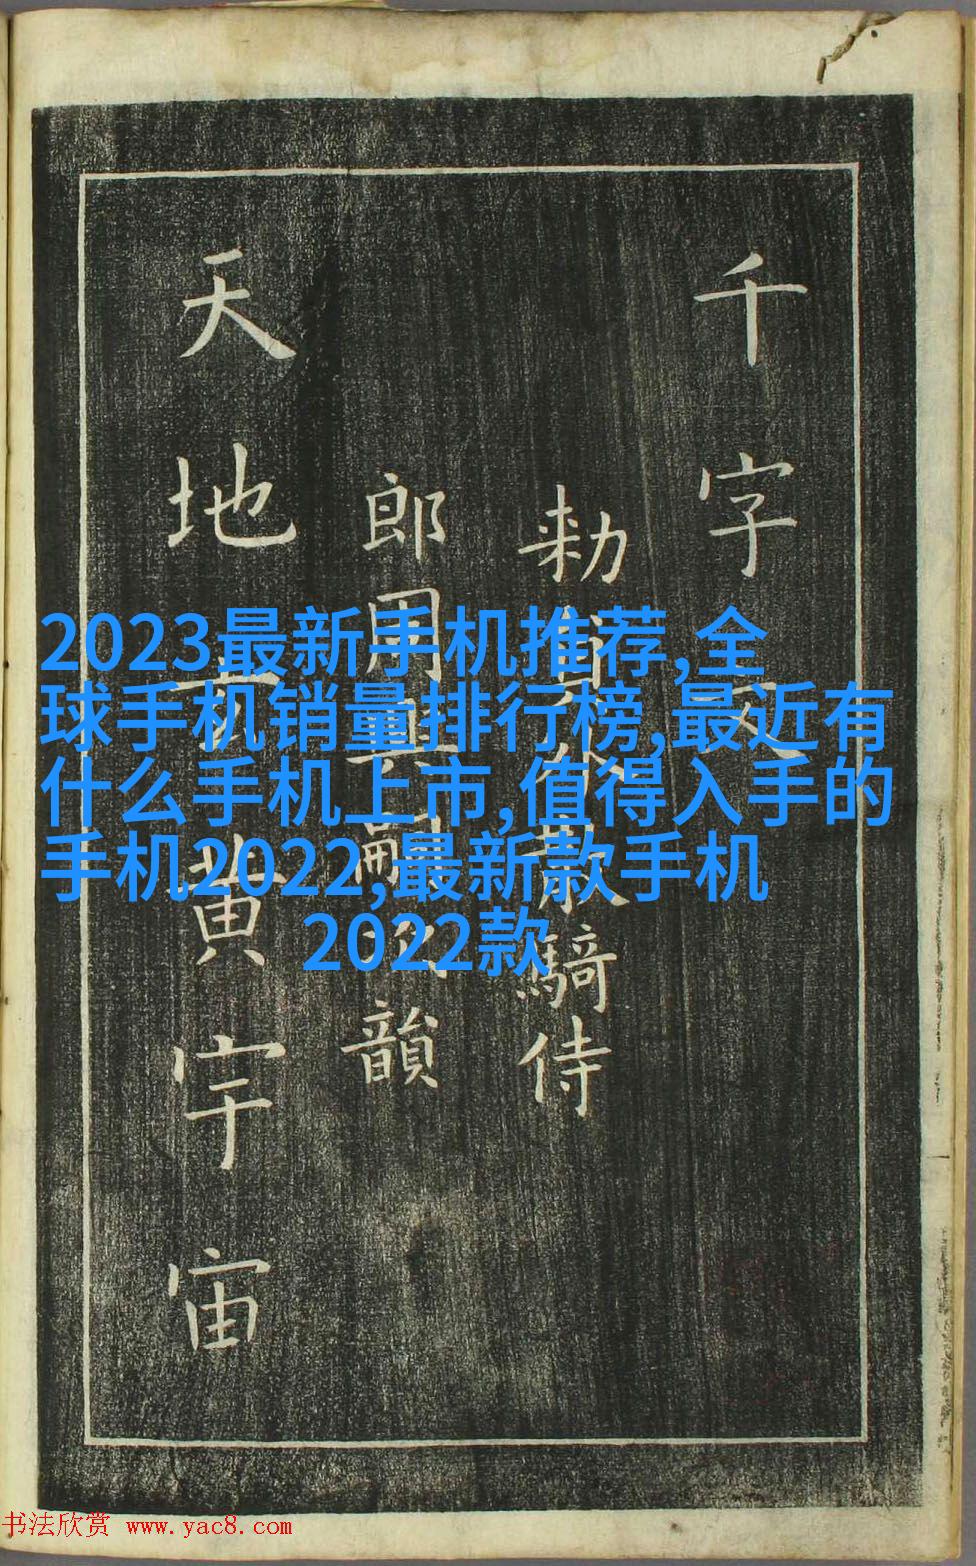 千字文
勑員外散騎侍
郎周興嗣次韻
天地玄黄宇宙
2023最新手机推荐,全
球手机销量排行榜,最近有
什么手机上市,值得入手的
手机2022,最新款手机
2022款
书法欣赏 www.yac8.com